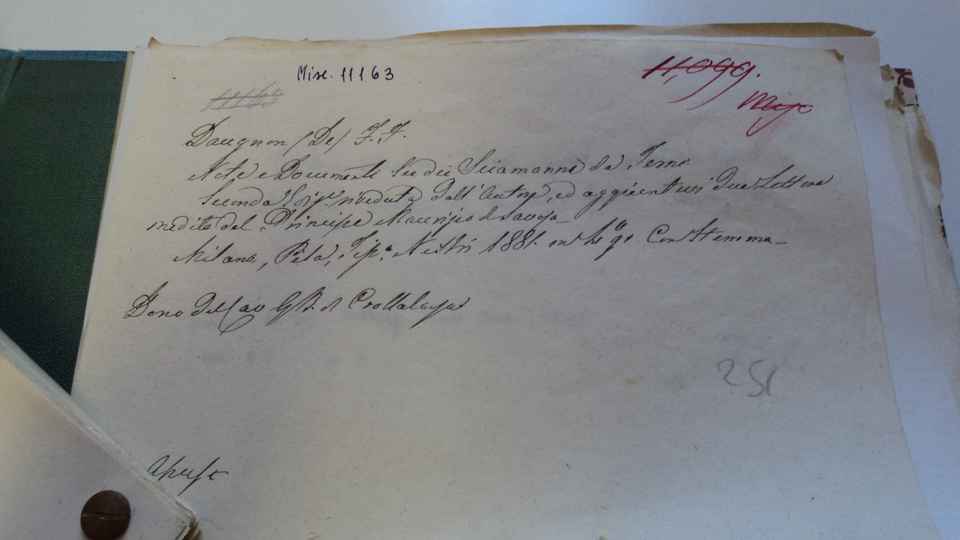 Misc. 11163
11,099.
Misc
11163
Daugnon (De) F. F.
Atto e Documenti Sui dei Scaramanni da Terno
Seconda Ediz. riveduta dall'Autore, ed aggiuntevi Due Lettere
inedite del Principe Maurizio di Savoja
Milano, Pisa, Tip. Nistri 1881. in 4º gr. Con Stemma
Dono del Cav G. B. di Crollalanza
251